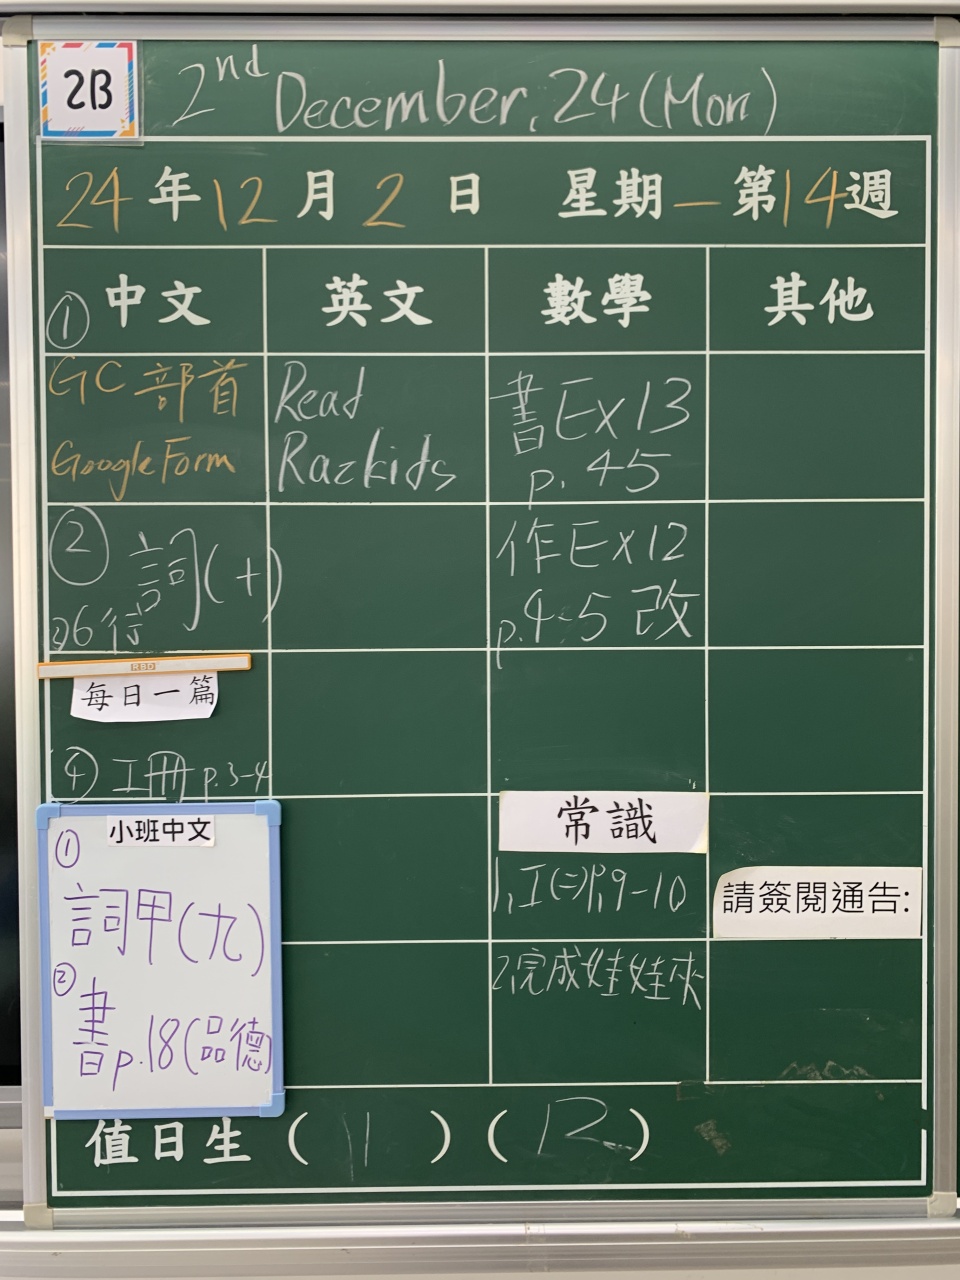 2B
2nd December, 24 (Mon)
24年12月2日 星期一 第14週
① 中文 英文 數學 其他
GC 部首
Google Form
Read
Razkids
書Ex13
p. 45
② 詞(十)
③6行
作Ex12
p.4-5 改
RBD
每日一篇
④ 工冊 p.3-4
小班中文
①
詞甲(九)
②
書p.18(品德)
常識
1. 工(二)P.9-10
2. 完成娃娃夾
請簽閱通告:
值日生 ( 11 ) ( 12 )